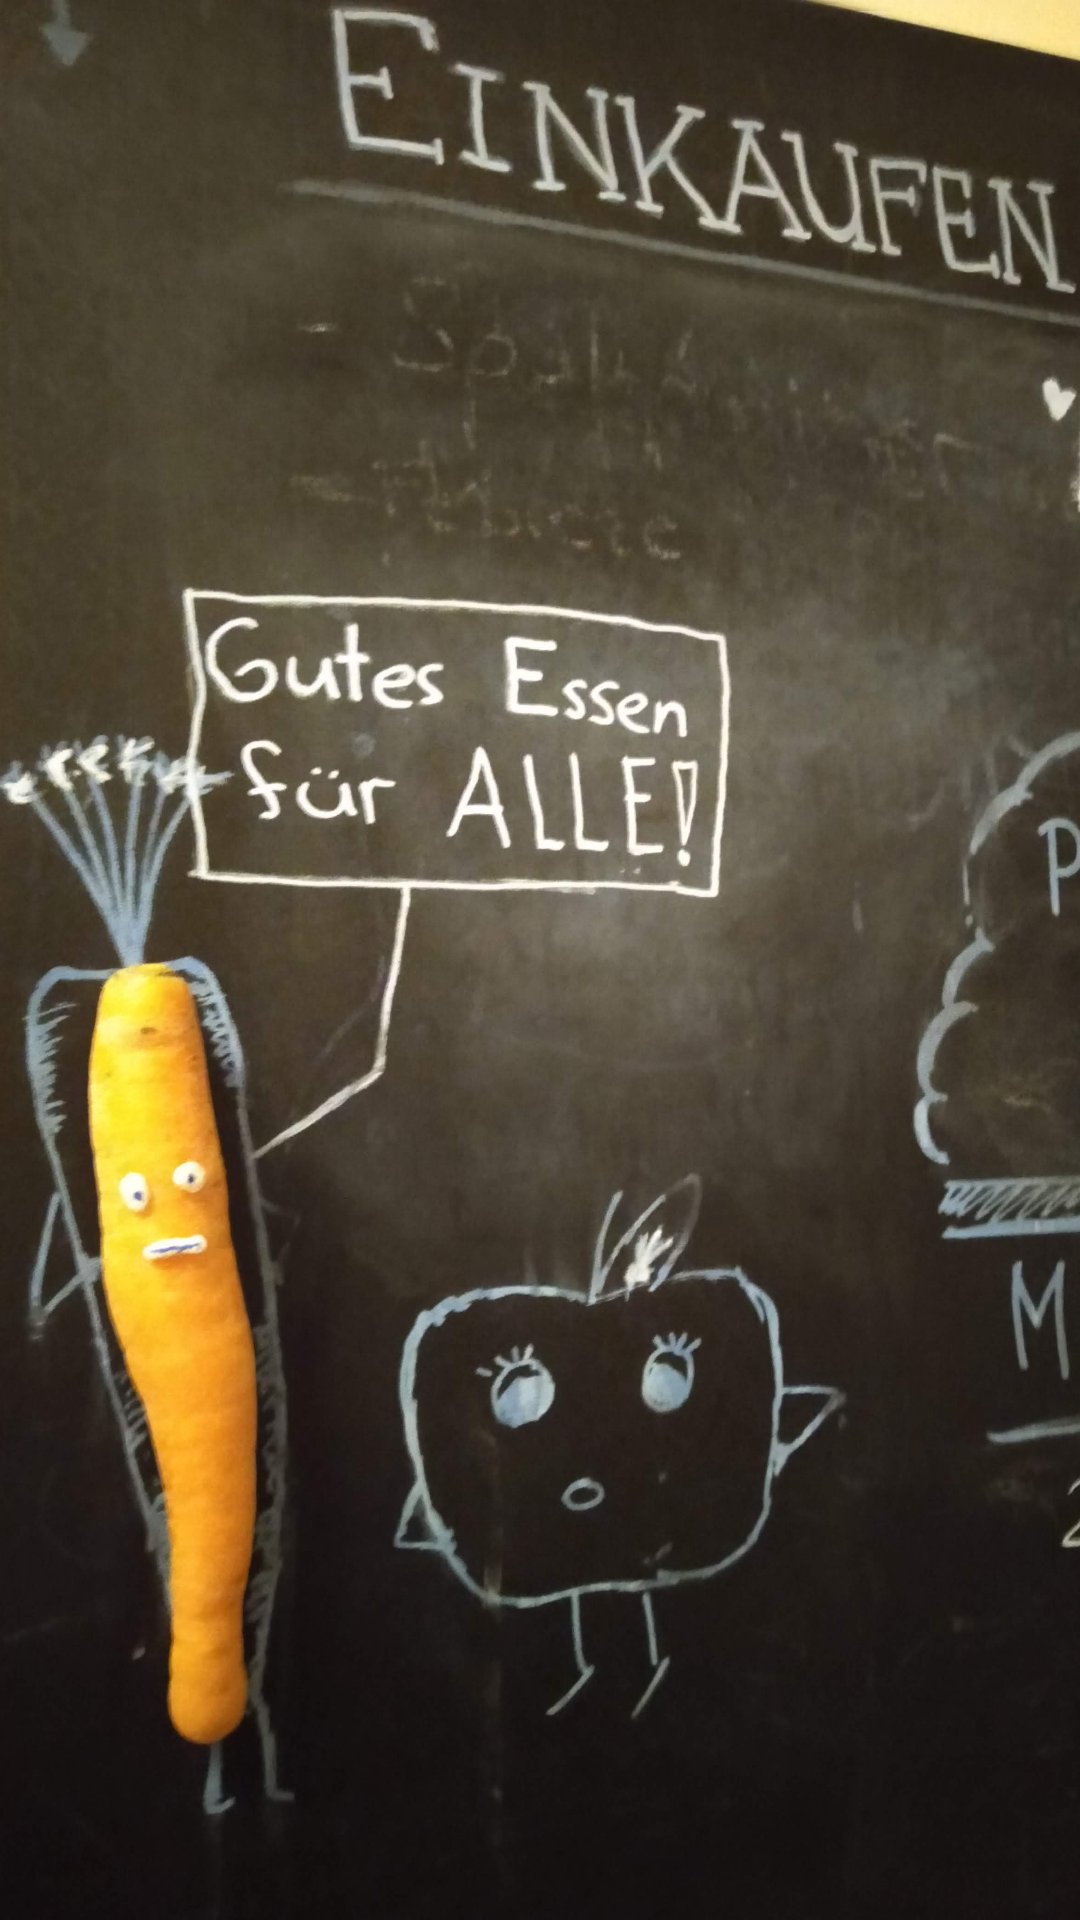 EINKAUFEN
Gutes Essen
für ALLE!
P
M
2